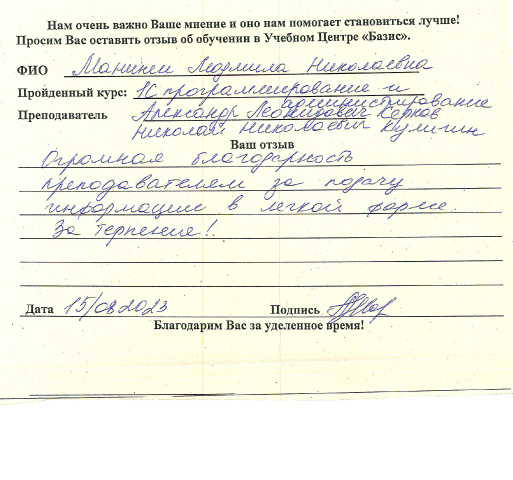 Нам очень важно Ваше мнение и оно нам помогает становиться лучше!
Просим Вас оставить отзыв об обучении в Учебном Центре «Базис».
ФИО Людмила Николаевна
Пройденный курс: 1С программирование и
администрирование
Преподаватель Александр Леонидович
Николай Николаевич Кулигин
Ваш отзыв
Огромная благодарность
преподавателям за подачу
информации в легкой форме.
За терпение!
Дата 15/08 2023 Подпись
Благодарим Вас за уделенное время!